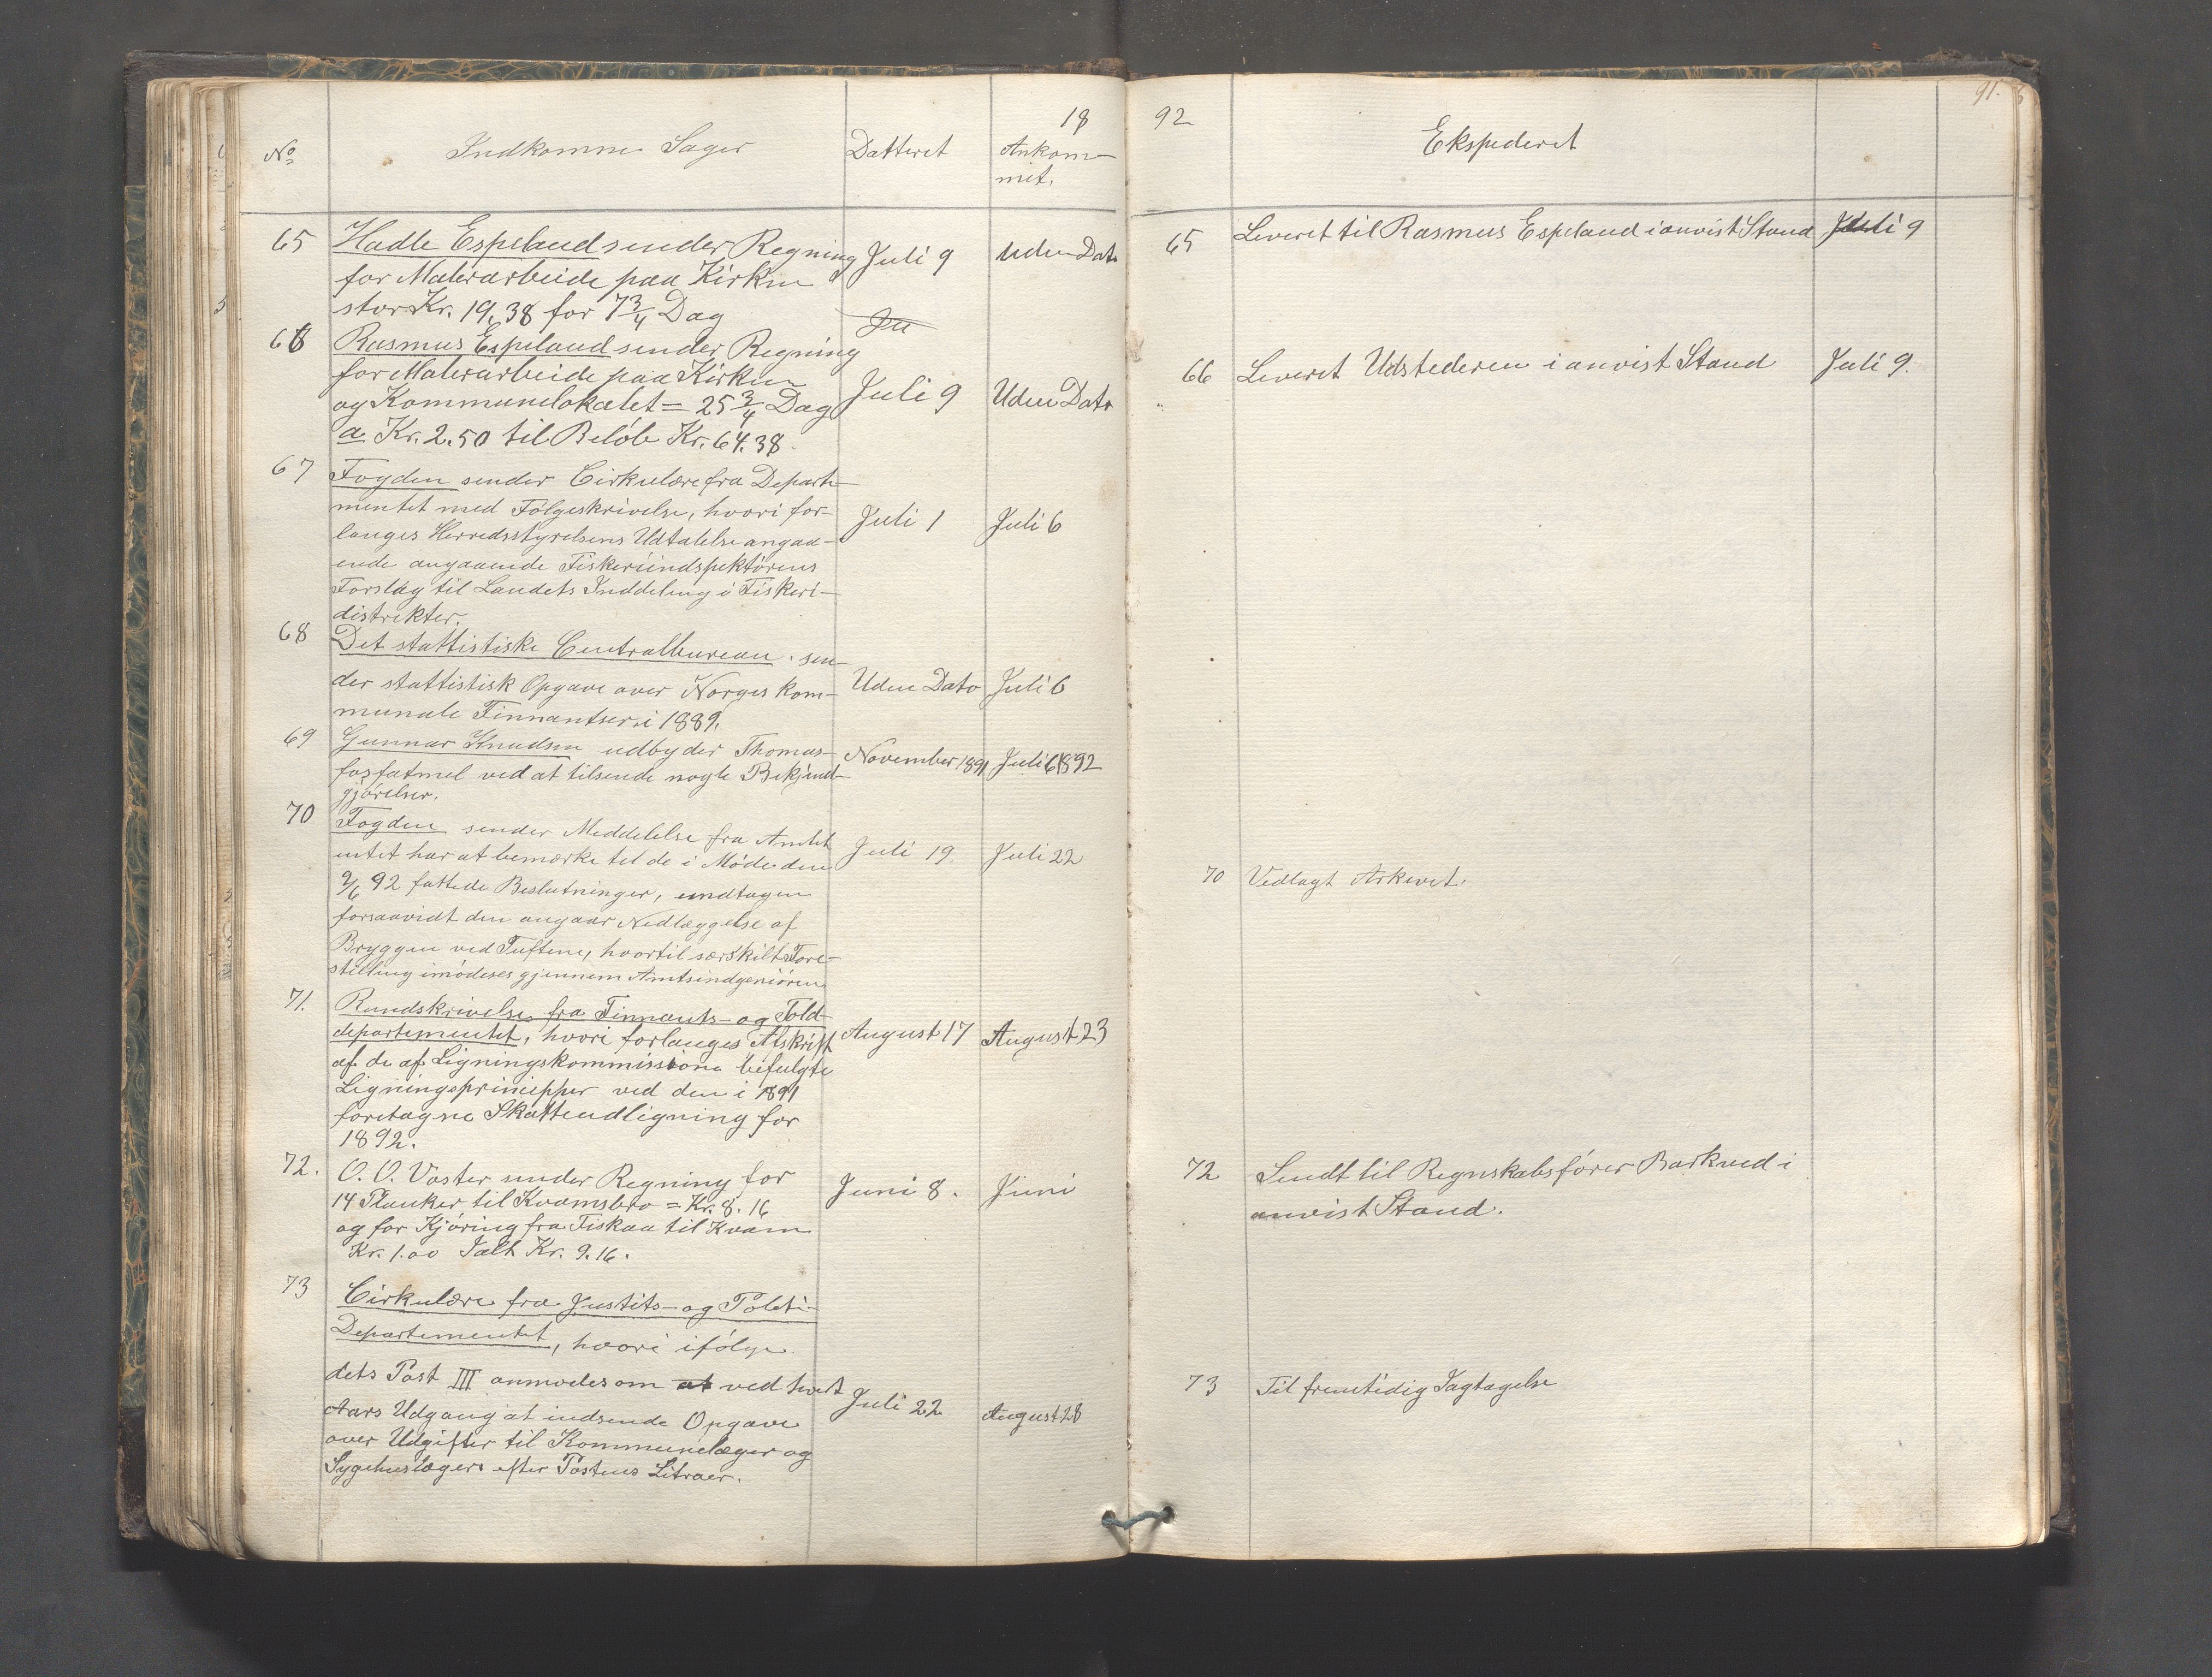 18 92
91.
No Indkomne Sager Datteret Ankom-
met.
Ekspederet
65 Hadle Espeland sender Regning Juli 9 Uden Dato
for Malerarbeide paa Kirken
stor Kr. 19,38 for 7 3/4 Dag
Ju
66 Rasmus Espeland sender Regning
for Malerarbeide paa Kirken
og Kommunelokalet = 25 3/4 Dag Juli 9 Uden Dato
a Kr. 2.50 til Beløb Kr. 64.38.
67 Fogden sender Cirkulære fra Departe-
mentet med Følgeskrivelse, hvori for- Juli 1 Juli 6
langes Herredsstyrelsens Udtalelse angaa-
ende angaaende Fiskeriindspektørens
Forslag til Landets Inddeling i Fiskeri-
distrikter.
68 Det stattistiske Centralbureau. sen-
der stattistisk Opgave over Norges kom- Uden Dato Juli 6
munale Finnantser i 1889.
69 Gunnar Knudsen udbyder Thomas- November 1891 Juli 6 1892
fosfatmel ved at tilsende nogle Bekjend-
gjørelser.
70 Fogden sender Meddelelse fra Amtet
intet har at bemærke til de i Møde den Juli 19. Juli 22
9/6 92 fattede Beslutninger, undtagen
forsaavidt den angaar Nedlæggelse af
Bryggen ved Tuftene, hvortil særskilt Fore-
stilling imødeses gjennem Amtsindgeniøren
71. Rundskrivelse fra Finnants- og Told-
departementet, hvori forlanges Afskrift August 17 August 23
af de af Ligningskommissione befulgte
Ligningsprinciepper ved den i 1891
foretagne Skatteudligning for
1892.
72. O. O. Vaster sender Regning for
14 Planker til Kvamsbro = Kr. 8.16 Juni 8. Juni
og for Kjøring fra Fiskaa til Kvam
Kr. 1.00 Ialt Kr. 9.16.
73 Cirkulære fra Justits- og Politi-
Departementet, hvori ifølge
dets Post III anmodes om at ved hvert
Aars Udgang at indsende Opgave Juli 22 August 28
over Udgifter til Kommunelæger og
Sygehuslægers efter Postens Litraer.
65 Leveret til Rasmus Espeland i anvist Stand Juli 9
66 Leveret Udstederen i anvist Stand Juli 9.
70 Vedlagt Arkivet.
72 Sendt til Regnskabsfører Barkved i
anvist Stand.
73 Til fremtidig Iagtagelse